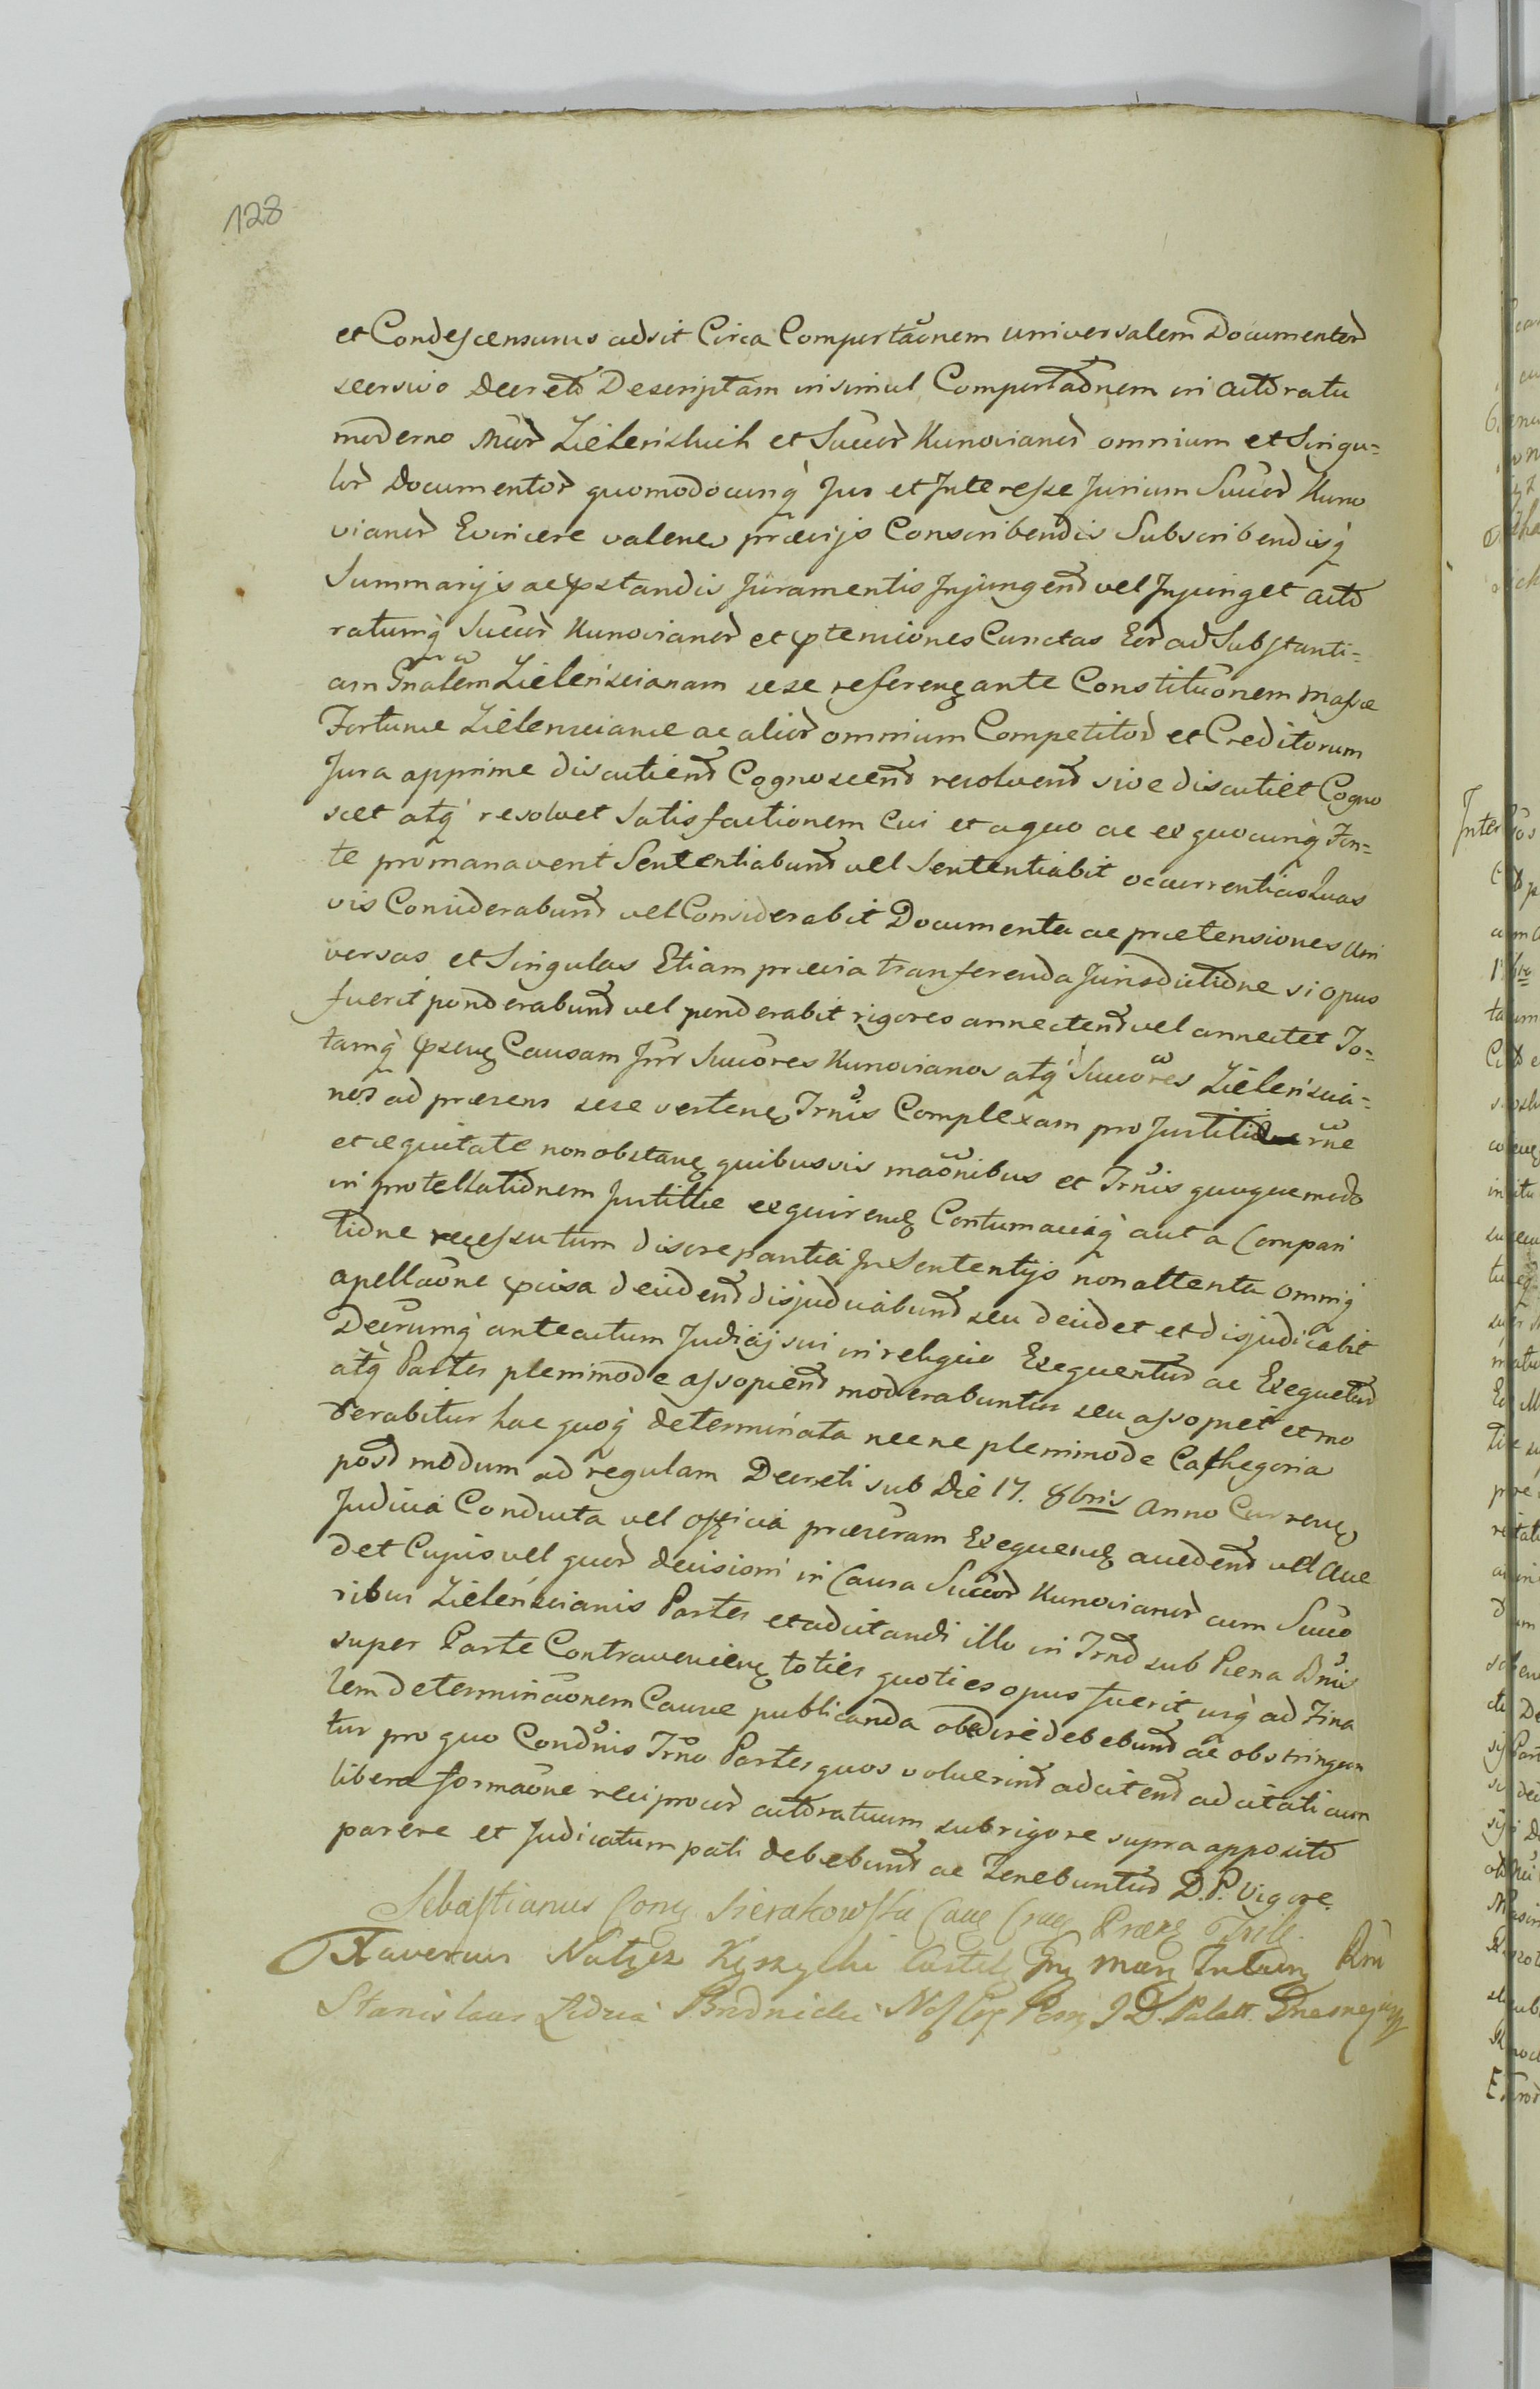 128
et Condescensurus adsit Circa Comportaõnem universalem Documentor̃
seersivo decreto Descriptam insimul Comportaõnem in actoratu
moderno Mior̃ Zielenskich et Succor̃ Kunovianor̃ omnium et Singu=
lor̃ Documentor̃ quomodocunq̀ Jus et Interesse Jurium Succor̃ Kuno
vianor̃ Evincere valene præviis Conscribendis Subscribendisq̀
Summarijs ac pstandis Juramentis Injungend vel Injunget acto
ratumq̀ Succor̃ Kunovianor̃ et ptensiones Cunctas Eor̃ ad Substanti=
am Gnalem Zielensianam sese referen ante Constituõnem Massæ
Fortunæ Zielensianæ ac alior̃ omnium Competitor̃ et Creditorum
Jura apprime discutiend Cognoscend resolvend sive discutiet Cogno
scet atq̀ resolvet Satisfactionem Cui et a quo ac ex quocunq̀ Fon=
te promanaverit Sententiabunt vel Sententiabit occurrentias Quas
vis Considerabunt vel Considerabit Documenta ac prætensiones Uni
versas et Singulas Etiam prævia tranferenda Jurisdictione si opus
fuerit ponderabunt vel ponderabit rigores annectend vel annectet To=
tamq̀ psen Causam Inr Succores Kunovianos atq̀ Succores Zielenscia=
nos ad præsens sese verten Trnis Complexam pro Justitia rñe
et æquitate non obstan quibusvis maõnibus et Trnis quoquemodo
in protellationem Justitiæ exquiren Contumaciaq̀ aut a Compari
tione recessutum discrepantia In Sententijs non attenta omniq̀
apellaõne pcisa decidend disjudicabunt seu decidet et disjudicabit
Decrumq̀ anteactum Judicij sui in reliquo Exequentur ac Exequetur
atq̀ Partes plenimode assopiend moderabuntur seu assopiet et mo
derabitur hac quoq̀ determinata necne plenimode Cathegoria
post modum ad regulam Decreti sub Die 17. 8bris Anno Curren
Judicia Conducta vel officia præseram Exequen accedent vel Acce
det Cujus vel quor̃ decisioni in Causa Succor̃ Kunovianor̃ cum Succo
ribus Zielenscianis Partes et adcitandi illo in Trno sub Pæna Bnis
super Parte Contravenien toties quoties opus fuerit usq̀ ad Fina
lem determinaõnem Causæ publicanda obedire debebunt ac obstringun
tur pro quo Condnis Trno Partes quos voluerint adcitend adcitati cum
libera formaõne reciprocor̃ actoratuum sub rigore supra apposito
parere et Judicatum pati debebunt ac Tenebuntur D. P. Vigore.
Sebastianus Sierakowski
Xaverius Kęszycki
Stanislaus